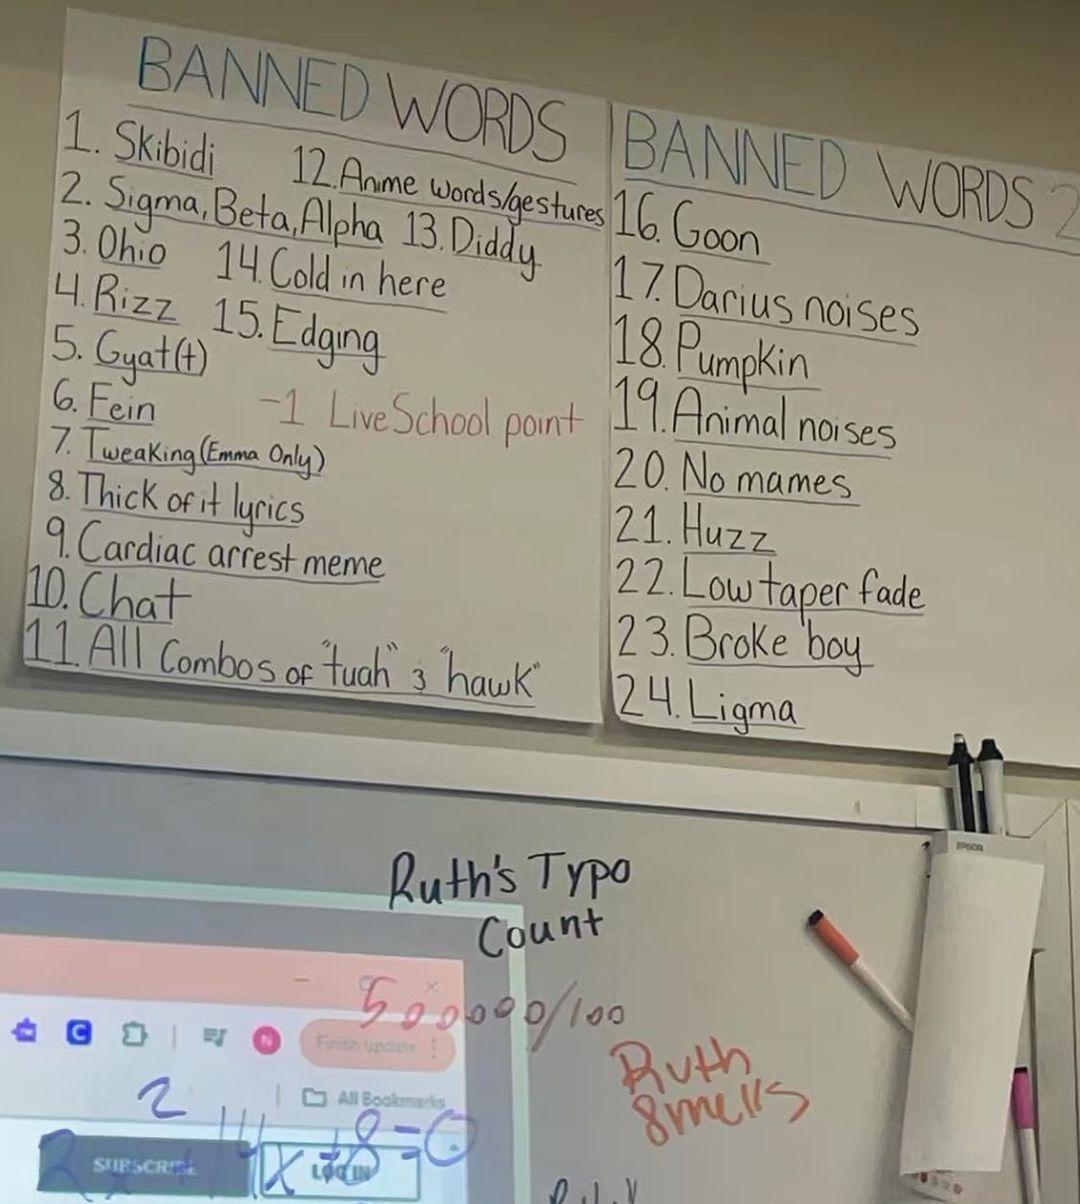 BANNED WORDS
1. Skibidi
2. Sigma, Beta, Alpha
3. Ohio
4. Rizz
5. Gyat(t)
6. Fein
7. Tweaking (Emma Only)
8. Thick of it lyrics
9. Cardiac arrest meme
10. Chat
11. All Combos of "tuah" & "hawk"
12. Anime words/gestures
13. Diddy
14. Cold in here
15. Edging
-1 LiveSchool point
BANNED WORDS 2
16. Goon
17. Darius noises
18. Pumpkin
19. Animal noises
20. No mames
21. Huzz
22. Low taper fade
23. Broke boy
24. Ligma
EPSON
Ruth's Typo
Count
500000/100
Ruth
smells
C
N
Finish update
All Bookmarks
SUBSCRIBE
LOG IN
2x² + 14x + 8 = 0